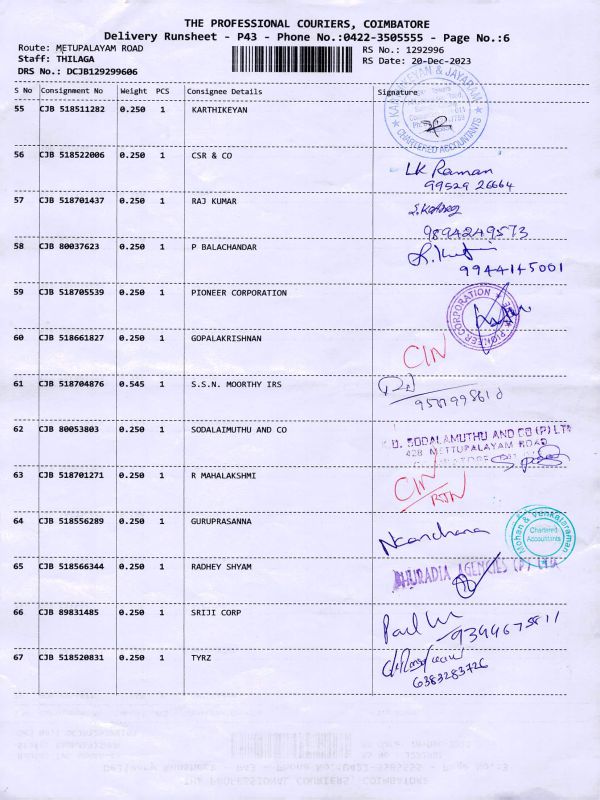 THE PROFESSIONAL COURIERS, COIMBATORE
Delivery Runsheet - P43 - Phone No.:0422-3505555 - Page No.:6
Route: METUPALAYAM ROAD
RS No.: 1292996
Staff: THILAGA
RS Date: 20-Dec-2023
DRS No.: DCJB129299606
S No Consignment No Weight PCS Consignee Details Signature
55 CJB 518511282 0.250 1 KARTHIKEYAN
KARTHIKEYAN & JAYARAM
CHARTERED ACCOUNTANTS
56 CJB 518522006 0.250 1 CSR & CO
LK Raman
99529 26664
57 CJB 518701437 0.250 1 RAJ KUMAR
9894249573
58 CJB 80037623 0.250 1 P BALACHANDAR
9944145001
59 CJB 518705539 0.250 1 PIONEER CORPORATION
PIONEER CORPORATION
60 CJB 518661827 0.250 1 GOPALAKRISHNAN
CIN
61 CJB 518704876 0.545 1 S.S.N. MOORTHY IRS
62 CJB 80053803 0.250 1 SODALAIMUTHU AND CO
SODALAMUTHU AND CO (P) LTD
428 METTUPALAYAM ROAD
63 CJB 518701271 0.250 1 R MAHALAKSHMI
CIN
RTN
64 CJB 518556289 0.250 1 GURUPRASANNA
Kanchana
Mohan & Venkataraman
Chartered
Accountants
65 CJB 518566344 0.250 1 RADHEY SHYAM
BHURADIA AGENCIES (P) LTD
66 CJB 89831485 0.250 1 SRIJI CORP
9344675811
67 CJB 518520831 0.250 1 TYRZ
6383283726